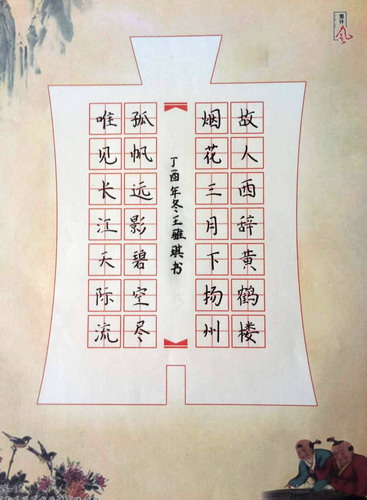 故人西辞黄鹤楼
烟花三月下扬州
孤帆远影碧空尽
唯见长江天际流
丁酉年冬王雅琪书